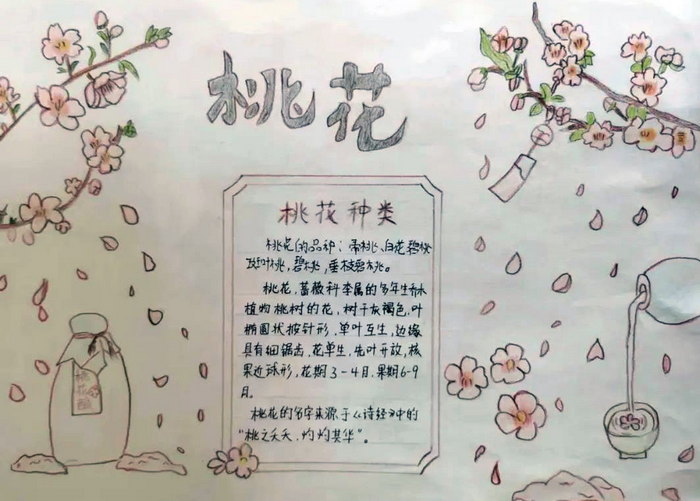 桃花
桃花种类
桃花的品种：帝桃、白花碧桃
及叶桃，碧桃，垂枝碧桃。
桃花，蔷薇科李属的多年生乔木
植物桃树的花，树干灰褐色，叶
椭圆状披针形，单叶互生，边缘
具有细锯齿，花单生，先叶开放，核
果近球形，花期3-4月，果期6-9
月。
桃花的名字来源于《诗经》中的
“桃之夭夭、灼灼其华”。
桃花酿